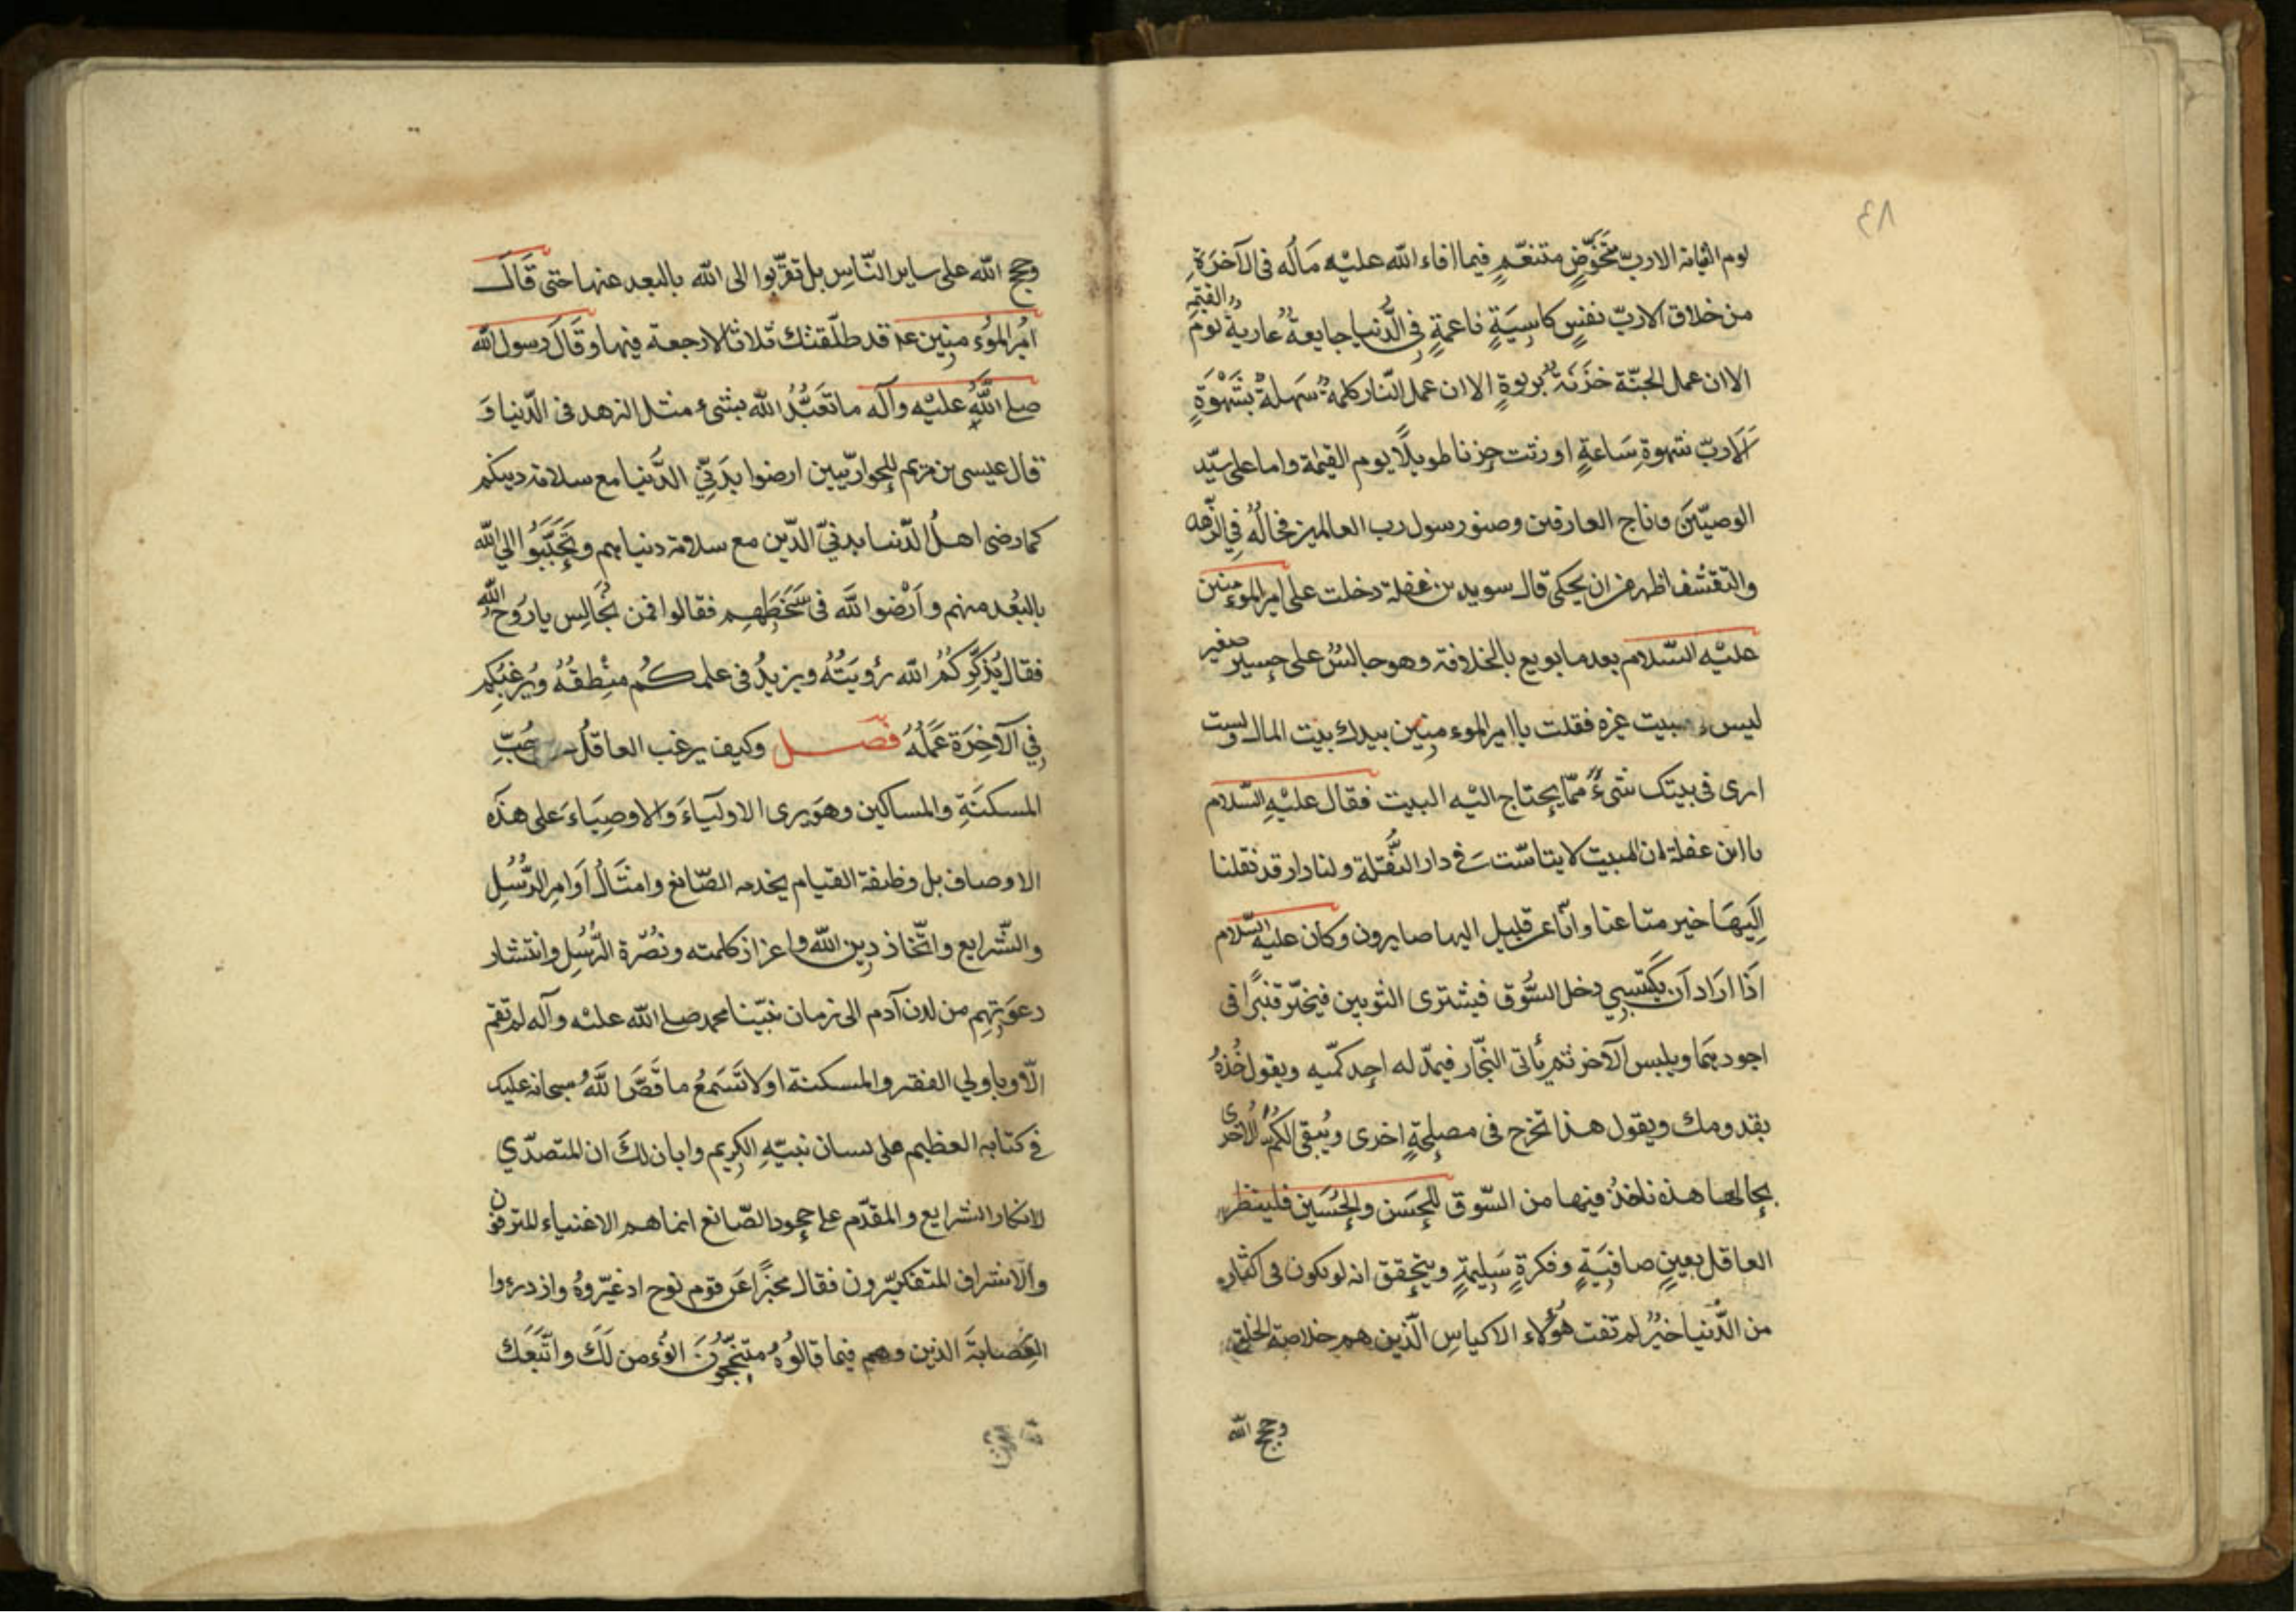 ٤٨
يوم القيامة الا ربّ متخوّضٍ متنعّمٍ فيما افاء الله عليه ماله فى الآخرةِ
من خلاق الا ربّ نفسٍ كاسيةٍ ناعمةٍ فى الدّنيا جايعةٌ عاريةٌ يومَ القيٰمة
الا ان عمل الجنّة حزنة بربوةٍ الا ان عمل النّار كلمة سهلة بشهْوَةٍ
اَلا ربّ شهوةِ سَاعةٍ اورثت حزنا طويلًا يوم القيٰمة واما على سيّد
الوصيّين وتاج العارفين وصنو رسول رب العالمين فحالُه فى الزّهد
والتقشف اظهر من ان يحكى قال سويد بن غفلة دخلت على امير الموءمنين
عليْه السّلام بعد ما بويع بالخلافة وهو جالسٌ على حصير صغير
ليس فى البيت غيره فقلت يا امير الموءمنين بيدك بيت المال ولست
ارى فى بيتك شىءٌ ممّا يحتاج اليْه البيت فقال عليْهِ السّلام
يا ابن غفلة ان البيت لا يتاثّث فى دار النُّقلة ولنا دار قد نقلنا
اِلَيهَا خير متاعنا وانّا عن قليل اليها صايرون وكان عليه السّلام
اَذَا ارَادَ اَن يكتسِي دخل السُّوق فيشترى الثوبين فيخيّر قنبرًا فى
اجودهمَا ويلبس الآخر ثم يأتى النجّار فيمدّ له احد كمّيه ويقول خُذهُ
بقدومك ويقول هذا تخرج فى مصلحةٍ اخرى ويُبقى الكمّ الاخرى
بحالها هذه ناخذُ فيها من السّوق للحَسَن والحُسَين فلينظر
العاقل بعينٍ صافيَةٍ وفكرةٍ سَليمةٍ ويتحقق انه لو يكون فى اكثار
من الدُّنيا خيرٌ لم تفت هؤلاء الاكياسِ الّذين هم خلاصة الخلق
وحجج الله
وحجج اللّه على ساير النّاسِ بل تقرّبوا الى الله بالبعد عنها حتى قَالَ
اميُر الموُء منِين عه قد طلّقتك ثلاثا لا رجعة فيها وقَالَ رسول الله
صلى اللَّهِ عليْه وآله ما تَعَبَّدُ الله بشىء مثل الزهد فى الدّنيا وَ
قال عيسى بن مَريم للحواريّيين ارضوا بِدَنِيِّ الدَّنيا مع سلامة دينكم
كما رضى اهلُ الدّنيا بدنيّ الدّين مع سلامة دنياهم وتحبَّبُوا الى الله
بالبُعْد منهم واَرْضُوا للَّه فى سَخَطِهِم فقالوا فمن نُجَالِس يا رُوحَ اللّه
فقال يُذكِّركُمُ الله رُؤيَتُهُ ويزيدُ فى علمكُم منْطِقُهُ ويُرغبُكم
فِي الآخِرَة عَمَلُهُ فصــل وكيف يرغب العاقلُ حُبِّ
المسكنَةِ والمساكين وهوَ يرى الاوليَاءَ وَالاوصِيَاءَ على هذه
الاوصاف بل وظيفة القيام بخدمه الصّانع وامتثَالُ اَوامِر الرُّسُلِ
والشّرايع واتّخاذ دِين اللّه واعزاز كلمته ونُصْرة الرُّسُلِ وانتشار
دعوَتِهم من لدن آدم الى زمان نبيّنا محمد صلى الله عليْه وآله لم تقم
الّا وباولي الفقر والمسكنة اولا تَسمَعُ ما قَصَّ اللَّهُ سبحانه عليك
في كتابه العظيم على لسان نبيّهِ الكريم وابان لكَ ان المتصدّي
لانكار الشرايع والمقدّم على جحود الصّانع انما هم الاغنياء المترفون
وَالاشراف المتفكبّرون فقال مخبرًا عَن قوم نوح اذ عيّروهُ وازدرءوا
العِصَابةَ الذين وهم فيما قالوهُ متبَجّحُونَ انؤمن لَكَ واتّبعَك